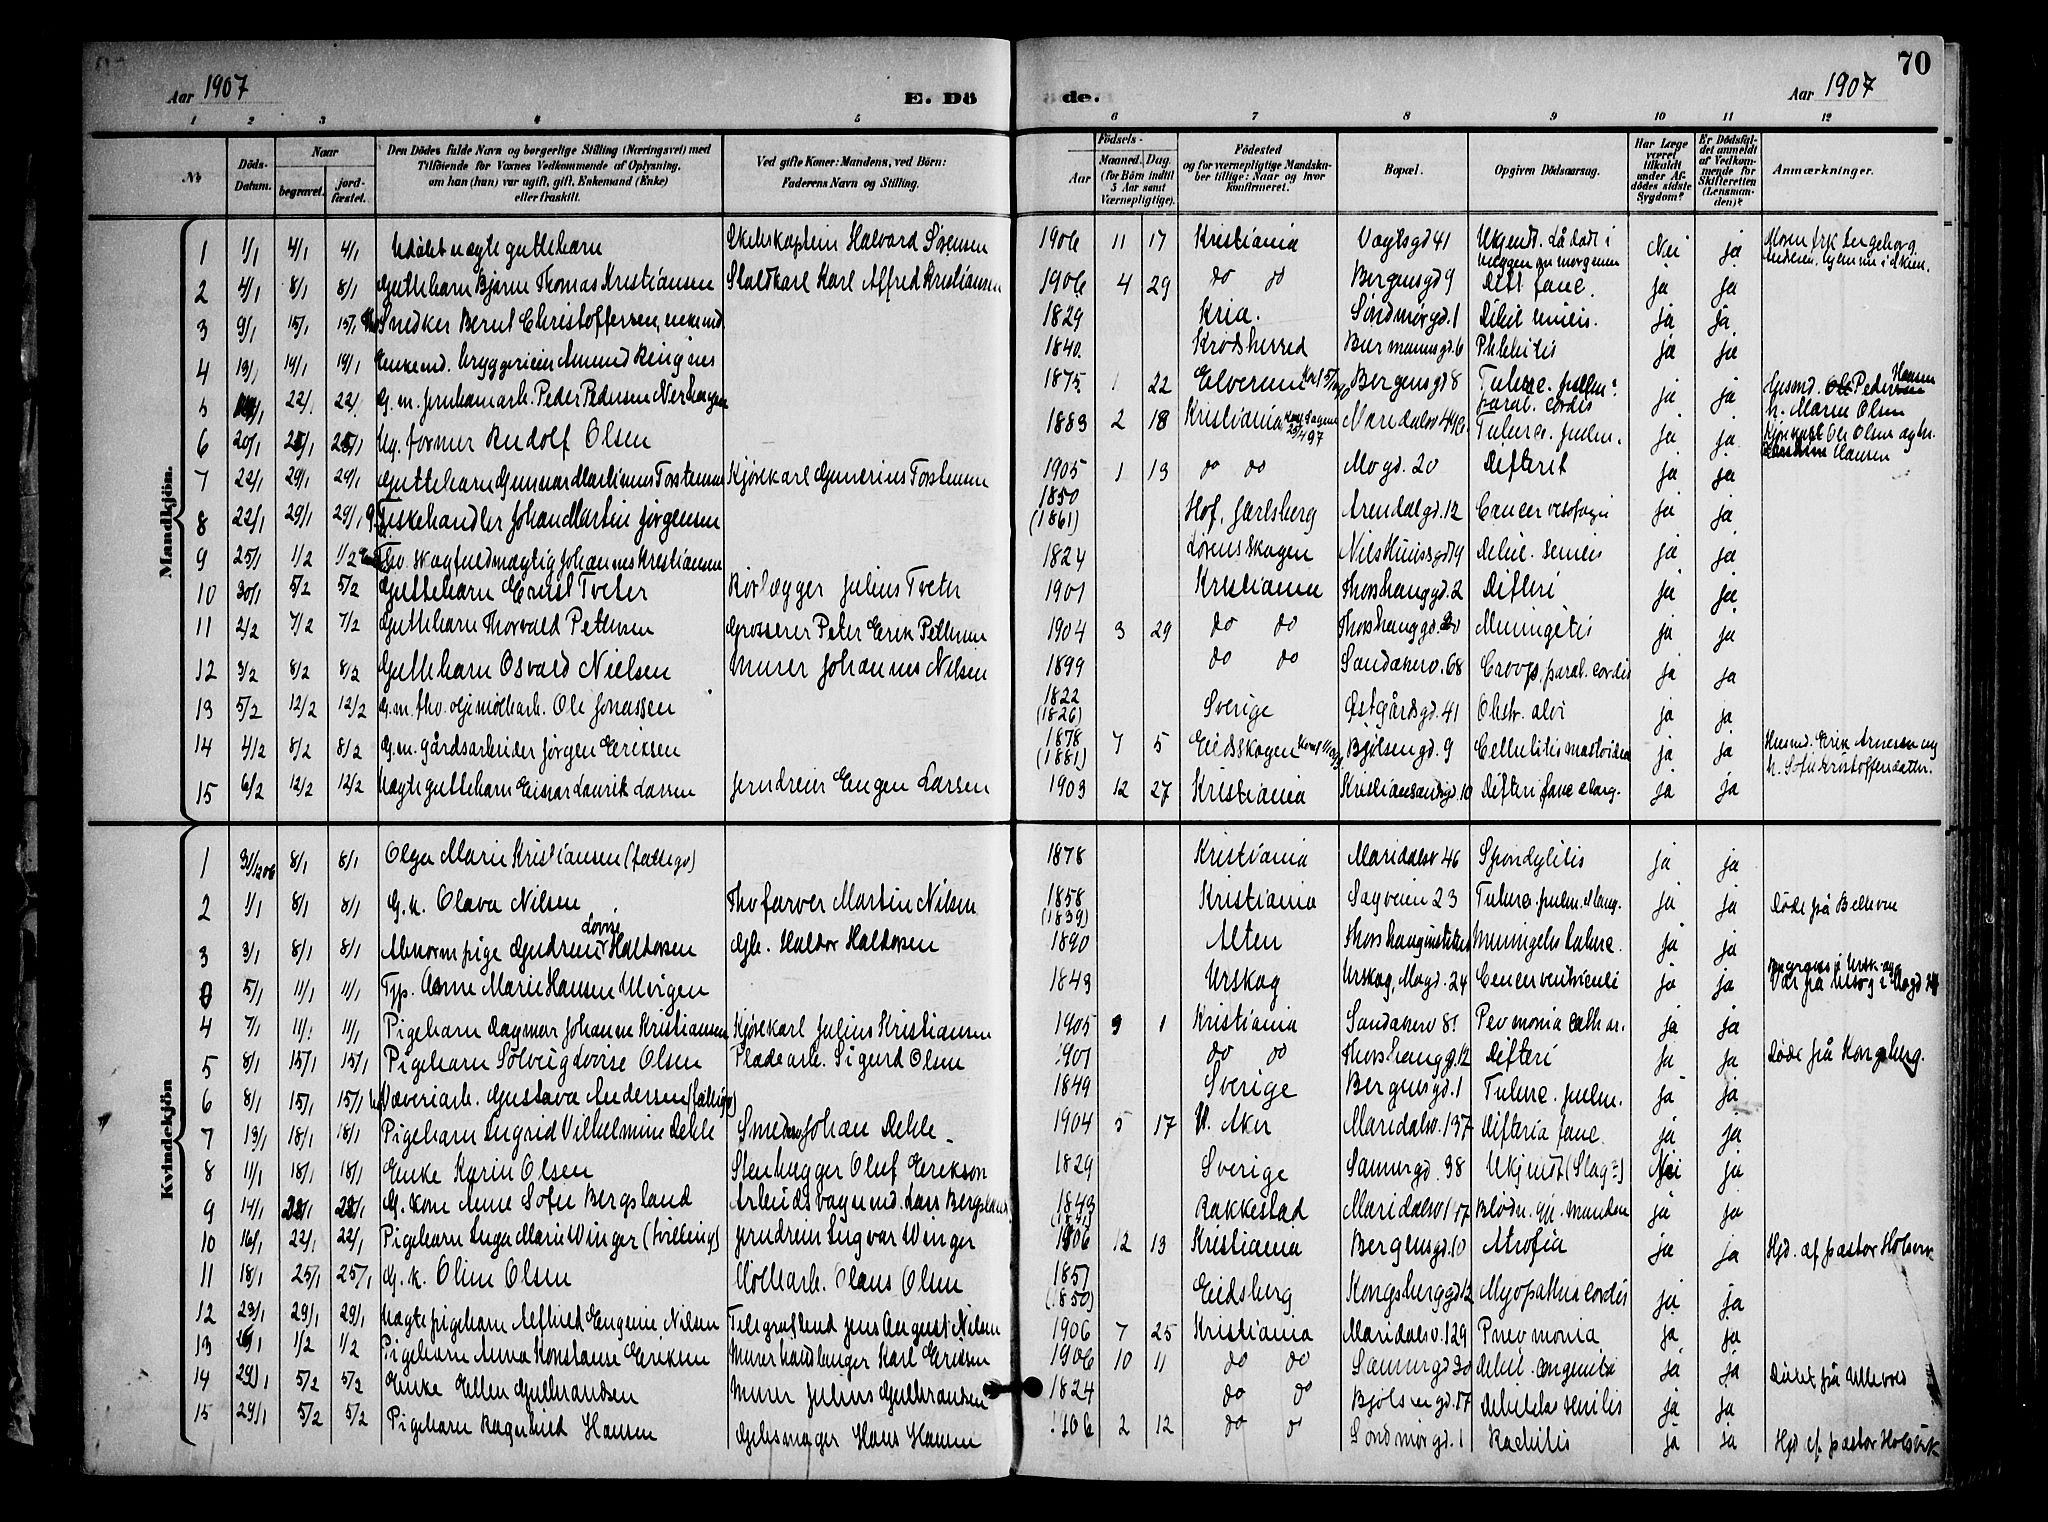 70
Aar 1907 E. Dö de. Aar 1907
1 2 3 4 5 6 7 8 9 10 11 12
№ Döds-Datum. Naar begravet. jord-fæstet. Den Dödes fulde Navn og borgerlige Stilling (Næringsvei) med Tilföiende for Voxnes Vedkommende af Oplysning, om han (hun) var ugift, gift, Enkemand (Enke) eller fraskilt. Ved gifte Koner: Mandens, ved Börn: Faderens Navn og Stilling. Aar Födsels- Maaned. Dag. (for Börn indtil 5 Aar samt Værnepligtige). Födested og for værnepligtige Mandskaber tillige: Naar og hvor konfirmeret. Bopæl. Opgiven Dödsaarsag. Har Læge været tilkaldt under Afdödes sidste Sygdom? Er Dödsfaldet anmeldt af Vedkommende for Skifteretten (Lensmanden)? Anmærkninger.
Mandkjön.
1 1/1 4/1 4/1 Udøbt uægte guttebarn Skibskaptein Halvard Sørensen 1906 11 17 Kristiania Vogtsgd 41 Ukjendt. Lå død i væggen om morgenen Nei ja Moren frk Ingeborg
2 4/1 8/1 8/1 Guttebarn Bjarne Thomas Kristiansen Staldkarl Karl Alfred Kristiansen 1906 4 29 do do Bergensgd 9 Dift. fauc. ja ja
3 9/1 15/1 15/1 Snedker Bernt Christoffersen, enkemd. 1829 Kria. Söndmörgd. 1 Debil. senilis. ja ja
4 13/1 19/1 19/1 Enkemd. bryggerieier Amund Ringnes 1840. Krødsherred Biermannsgd. 6 Phlebitis ja ja
5 22/1 22/1 G. m. jernbanearb. Peder Pedersen Nerhagen 1875 1 22 Elverum Bergensgd 8 Tuberc. pulm. paral. cordis ja ja Husmd. Peder Hansen h. Marie Olsen
6 20/1 25/1 25/1 Ug. former Rudolf Olsen 1883 2 18 Kristiania Maridalsv 44b Tuberc. pulm. ja ja Kjørekarl Ole Olsen og h. Hansen
7 22/1 29/1 29/1 Guttebarn Gunnar Martinius Torstensen Kjørekarl Gunerius Torstensen 1905 1 13 do do Mogd. 20 Difterit ja ja
8 22/1 29/1 29/1 Fiskehandler Johan Martin Jørgensen 1850 (1861) Hof, Jarlsberg Arendalgd. 12 Cancer oesofagi ja ja
9 25/1 1/2 1/2 Fhv. Johannes Kristiansen 1824 Lørenskogen Nils Huusgd 9 Debil. senilis ja ja
10 30/1 5/2 5/2 Guttebarn Ernst Tveter Rörlægger Julius Tveter 1901 Kristiania Thorshauggd. 2 Difteri ja ja
11 2/2 7/2 7/2 Guttebarn Thorvald Pettersen Grosserer Peter Erik Pettersen 1904 3 29 do do Thorshauggd. Meningitis ja ja
12 3/2 8/2 8/2 Guttebarn Osvald Nielsen Murer Johannes Nilsen 1899 do do Sandakerv. 68 Croop, paral. cordis ja ja
13 5/2 12/2 12/2 G. m. fhv. oljemøllearb. Ole Jonassen 1822 (1826) Sverige Østgårdsgd. 41 Obstr. alvi ja ja
14 4/2 8/2 8/2 G. m. gårdsarbeider Jørgen Eriksen 1878 (1881) 7 5 Eidsskogen Bjølsengd. 9 Cellulitis mastoidea ja ja Husmd. Erik Arnesen og h. Sofie Kristoffersdatter.
15 6/2 12/2 12/2 Uægte guttebarn Einar Laurik Larsen Jerndreier Eugen Larsen 1903 12 27 Kristiania Kristiansandsgd. 10 Difteri fauc & larg. ja ja
Kvindekjön
1 31/12 06 8/1 8/1 Olga Marie Kristiansen (fattigv) 1878 Kristiania Maridalsv 46 Spondylitis ja ja
2 1/1 8/1 8/1 G. k. Olava Nilsen Fhv farver Martin Nilsen 1858 (1839) Kristiania Sagveien 23 Tuberc. pulm. & lang. ja ja Døde på
3 3/1 8/1 8/1 Abnorm pige Gudrun Lovise Haldorsen Gbr. Haldor Haldorsen 1890 Alten Thorshauginstitut Meningitis tuberc. ja ja
0 5/1 11/1 11/1 Tyg. Anne Marie Hansen Ulvigen 1843 Urskog Urskog, Mogd. 24 Cancer ventriculi ja ja
4 7/1 11/1 11/1 Pigebarn Dagmar Johanne Kristiansen Kjørekarl Julius Kristiansen 1905 9 1 Kristiania Sandakerv 8 Pevmonia cathar. ja ja
5 8/1 15/1 15/1 Pigebarn Sölvrig Lovise Olsen Pladearb. Sigurd Olsen 1901 do do Thorshauggd. 12 Difteri ja ja Døde på Kongsberg.
6 8/1 15/1 15/1 Væveriarb. Gustava Andersen (fattigv) 1849 Sverige Bergensgd. 1 Tuberc. pulm. ja ja
7 13/1 18/1 18/1 Pigebarn Ingrid Vilhelmine Dehle Smed Johan Dehle 1904 5 17 V. Aker Maridalsv. 137 Difteria fauc. ja ja
8 11/1 18/1 18/1 Enke Karin Olsen Stenhugger Oluf Erikson 1829 Sverige Sannergd. 38 Ukjendt (Slag?) Nei ja
9 14/1 22/1 22/1 G. kone Anne Sofie Bergsland Arbeidsvognmd. Lars Bergsland 1843 (1841) Rakkestad Maridalsv 117 Blødn. gj. munden ja ja
10 16/1 22/1 22/1 Pigebarn Inga Marie Winger (tvilling) Jerndreier Ingvar Winger 1906 12 13 Kristiania Bergensgd. 10 Atrofia ja ja Hgd. af pastor
11 18/1 25/1 25/1 G. k. Oline Olsen Møllearb. Olaus Olsen 1851 (1850) Eidsberg Kongsberggd 12 Myopathia cordis ja ja
12 23/1 29/1 29/1 Uægte pigebarn Alfhild Eugenie Nilsen Telegrafbud Jens August Nilsen 1906 7 25 Kristiania Maridalsv. 129 Pnevmonia ja ja
13 1/2 1/2 Pigebarn Anna Konstanse Eriksen Murerhandlanger Karl Eriksen 1906 10 11 do do Sannergd 30 Debil. congenita ja ja
14 29/1 5/2 5/2 Enke Ellen Gulbrandsen Murer Julius Gulbrandsen 1824 do do Bjølsengd. 17 Debilitas senilis ja ja Døde på Ullevold
15 29/1 5/2 5/2 Pigebarn Ragnhild Hansen Gjelsmager Hans Hansen 1906 2 12 do do Söndmörgd. 1 Rachitis ja ja Hgd af pastor